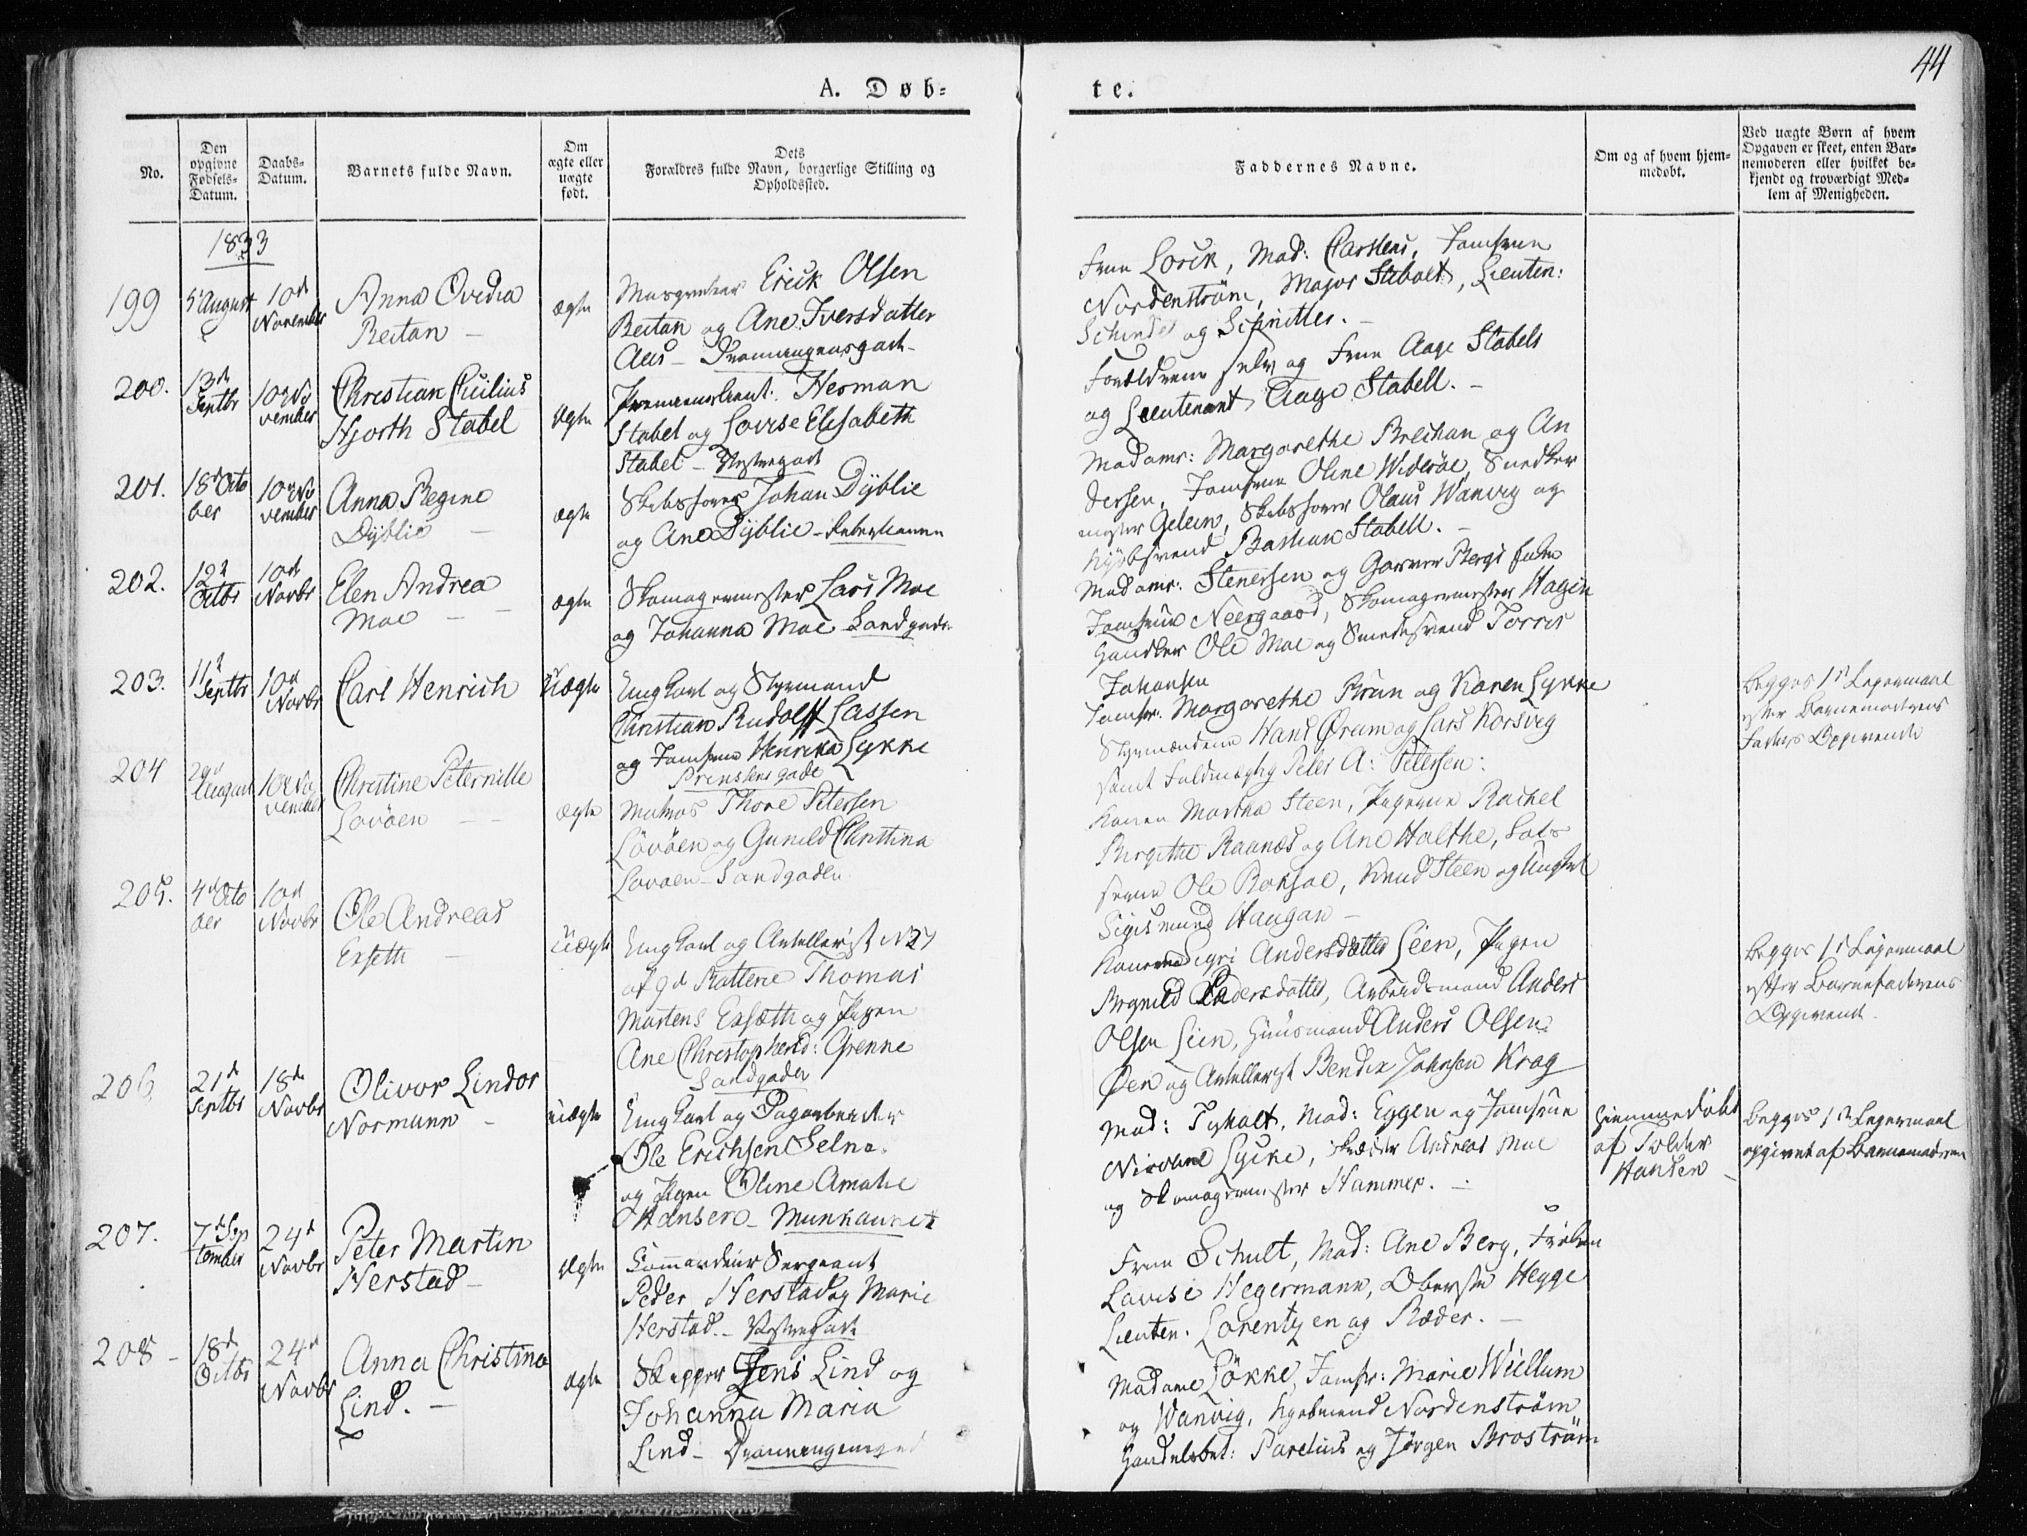 44
A. Døb=
te.
No.
Den opgivne Fødsels-Datum.
Daabs-Datum.
Barnets fulde Navn.
Om ægte eller uægte født.
Dets Forældres fulde Navn, borgerlige Stilling og Opholdssted.
Faddernes Navne.
Om og af hvem hjemmedøbt.
Ved uægte Børn af hvem Opgaven er skeet, enten Barnemoderen eller hvilket bekjendt og troværdigt Medlem af Menigheden.
1833
199
5 August
10d November
Anna Ovidia
Reitan —
ægte
Erick Olsen
Reitan og Ane Iversdatter
Aas —
Frue Lorck, Mad: Carstens, Jomfrue
Nordenstrøm, Major Stabell, Lieuten:
og Schnitler. —
200.
13de Septbr
10 November
Christian Cicilius
Hjorth Stabel
ægte
Premierlieut. Herman
Stabel og Lovise Elisabeth
Stabel —
Forældrene selv og Frue Aage Stabels
og Lieutenant Aage Stabell. —
201.
18d October
10 November
Anna Regine
Dyblie —
ægte
Skibsfører Johan Dyblie
og Ane Dyblie —
Madame: Margarethe Brechan og Andersen,
Jomfrue Oline Widerøe, Snedker
mester Gelein, Skibsfører Olaus Wanvig og
Bastian Stabell. —
202.
12d Octbr
10d Novbr
Elen Andrea
Moe —
ægte
Skomagermester Lars Moe
og Johanna Moe Sandgaden
Madame: Stenersen og Garver Bergs
Jomfrue Neergaard, Skomagermester Hagen
Handler Ole Moe og Smedesvend Torris
Johansen
203.
11d Septbr
10d Novbr
Carl Henrich
Uægte
Ungkarl og Styrmand
Christian Rudolff Lassen
og Jomfrue Henrika Lykke
Prinsensgade
Jomfr: Margarethe Prøn og Karen Lykke
Styrmændene Hans Ørum og Lars Korsveg
samt Fuldmægtig Peter A: Petersen:
Begges 1ste Leiermaal
efter Barnemoderens
Faders Opgivende
204
29d August
10 November
Christine Peternille
Lovøen — —
ægte
Matros Thore Petersen
Lövöen og Gunild Christina
Lovoen — Sandgaden
Konen Martha Steen, Pigerne Rachel
Birgithe Raanæs og Ane Holthe,
Ole Roksae, Knud Steen og Ungkarl
Sigismund Haugan —
205.
4d October
10d Novbr
Ole Andreas
Exseth —
Uægte
Ungkarl og Artillerist No 27
af 9d Batterie Thomas
Mortens Exsæth og Pigen
Ane Christophersd: Grenne
Sandgaden
Konerne Sigri Andersdatter Leen, Pigen
Brynild Pedersdatter, Arbeidsmand Anders
Olsen Leen, Huusmand Anders Olsen
Øen og Artillerist Bendix Johnsen Krog
Begges 1ste Leiermaal
efter Barnefaderens
Opgivende
206
21d Septbr
18d Novbr
Olivor Lindor
Normann —
uægte
Ungkarl og Dagarbeider
Ole Erichsen Selna
og Pigen Oline Amalie
Hansen — Munkaunet
Mad: Tyholt, Mad: Eggen og Jomfrue
Nicoline Lycke, Andreas Moe
og Skomagermester Hammer. —
Hiemmedøbt
af Tolder
Hansen
Begges 1ste Leiermaal
opgivet af Barnemoderen
207.
7d September
24d Novbr
Peter Martin
Herstad —
ægte
Commandeur Sergeant
Peder Herstad og Marie
Herstad. —
Frue Schult, Mad: Ane Berg, Frøken
Lovise Hegermann, Oberste Hegge
Lieuten. Lorentzen og Ræder. —
208 —
18d Octbr
24d Novbr
Anna Christina
Lind. —
ægte
Skipper Jens Lind og
Johanna Maria
Lind —
Madame Løkke, Jomfr: Marie Wiellum
og Wanvig, Nordenstrøm
Handelsbet: Parelius og Jørgen Brostrøm